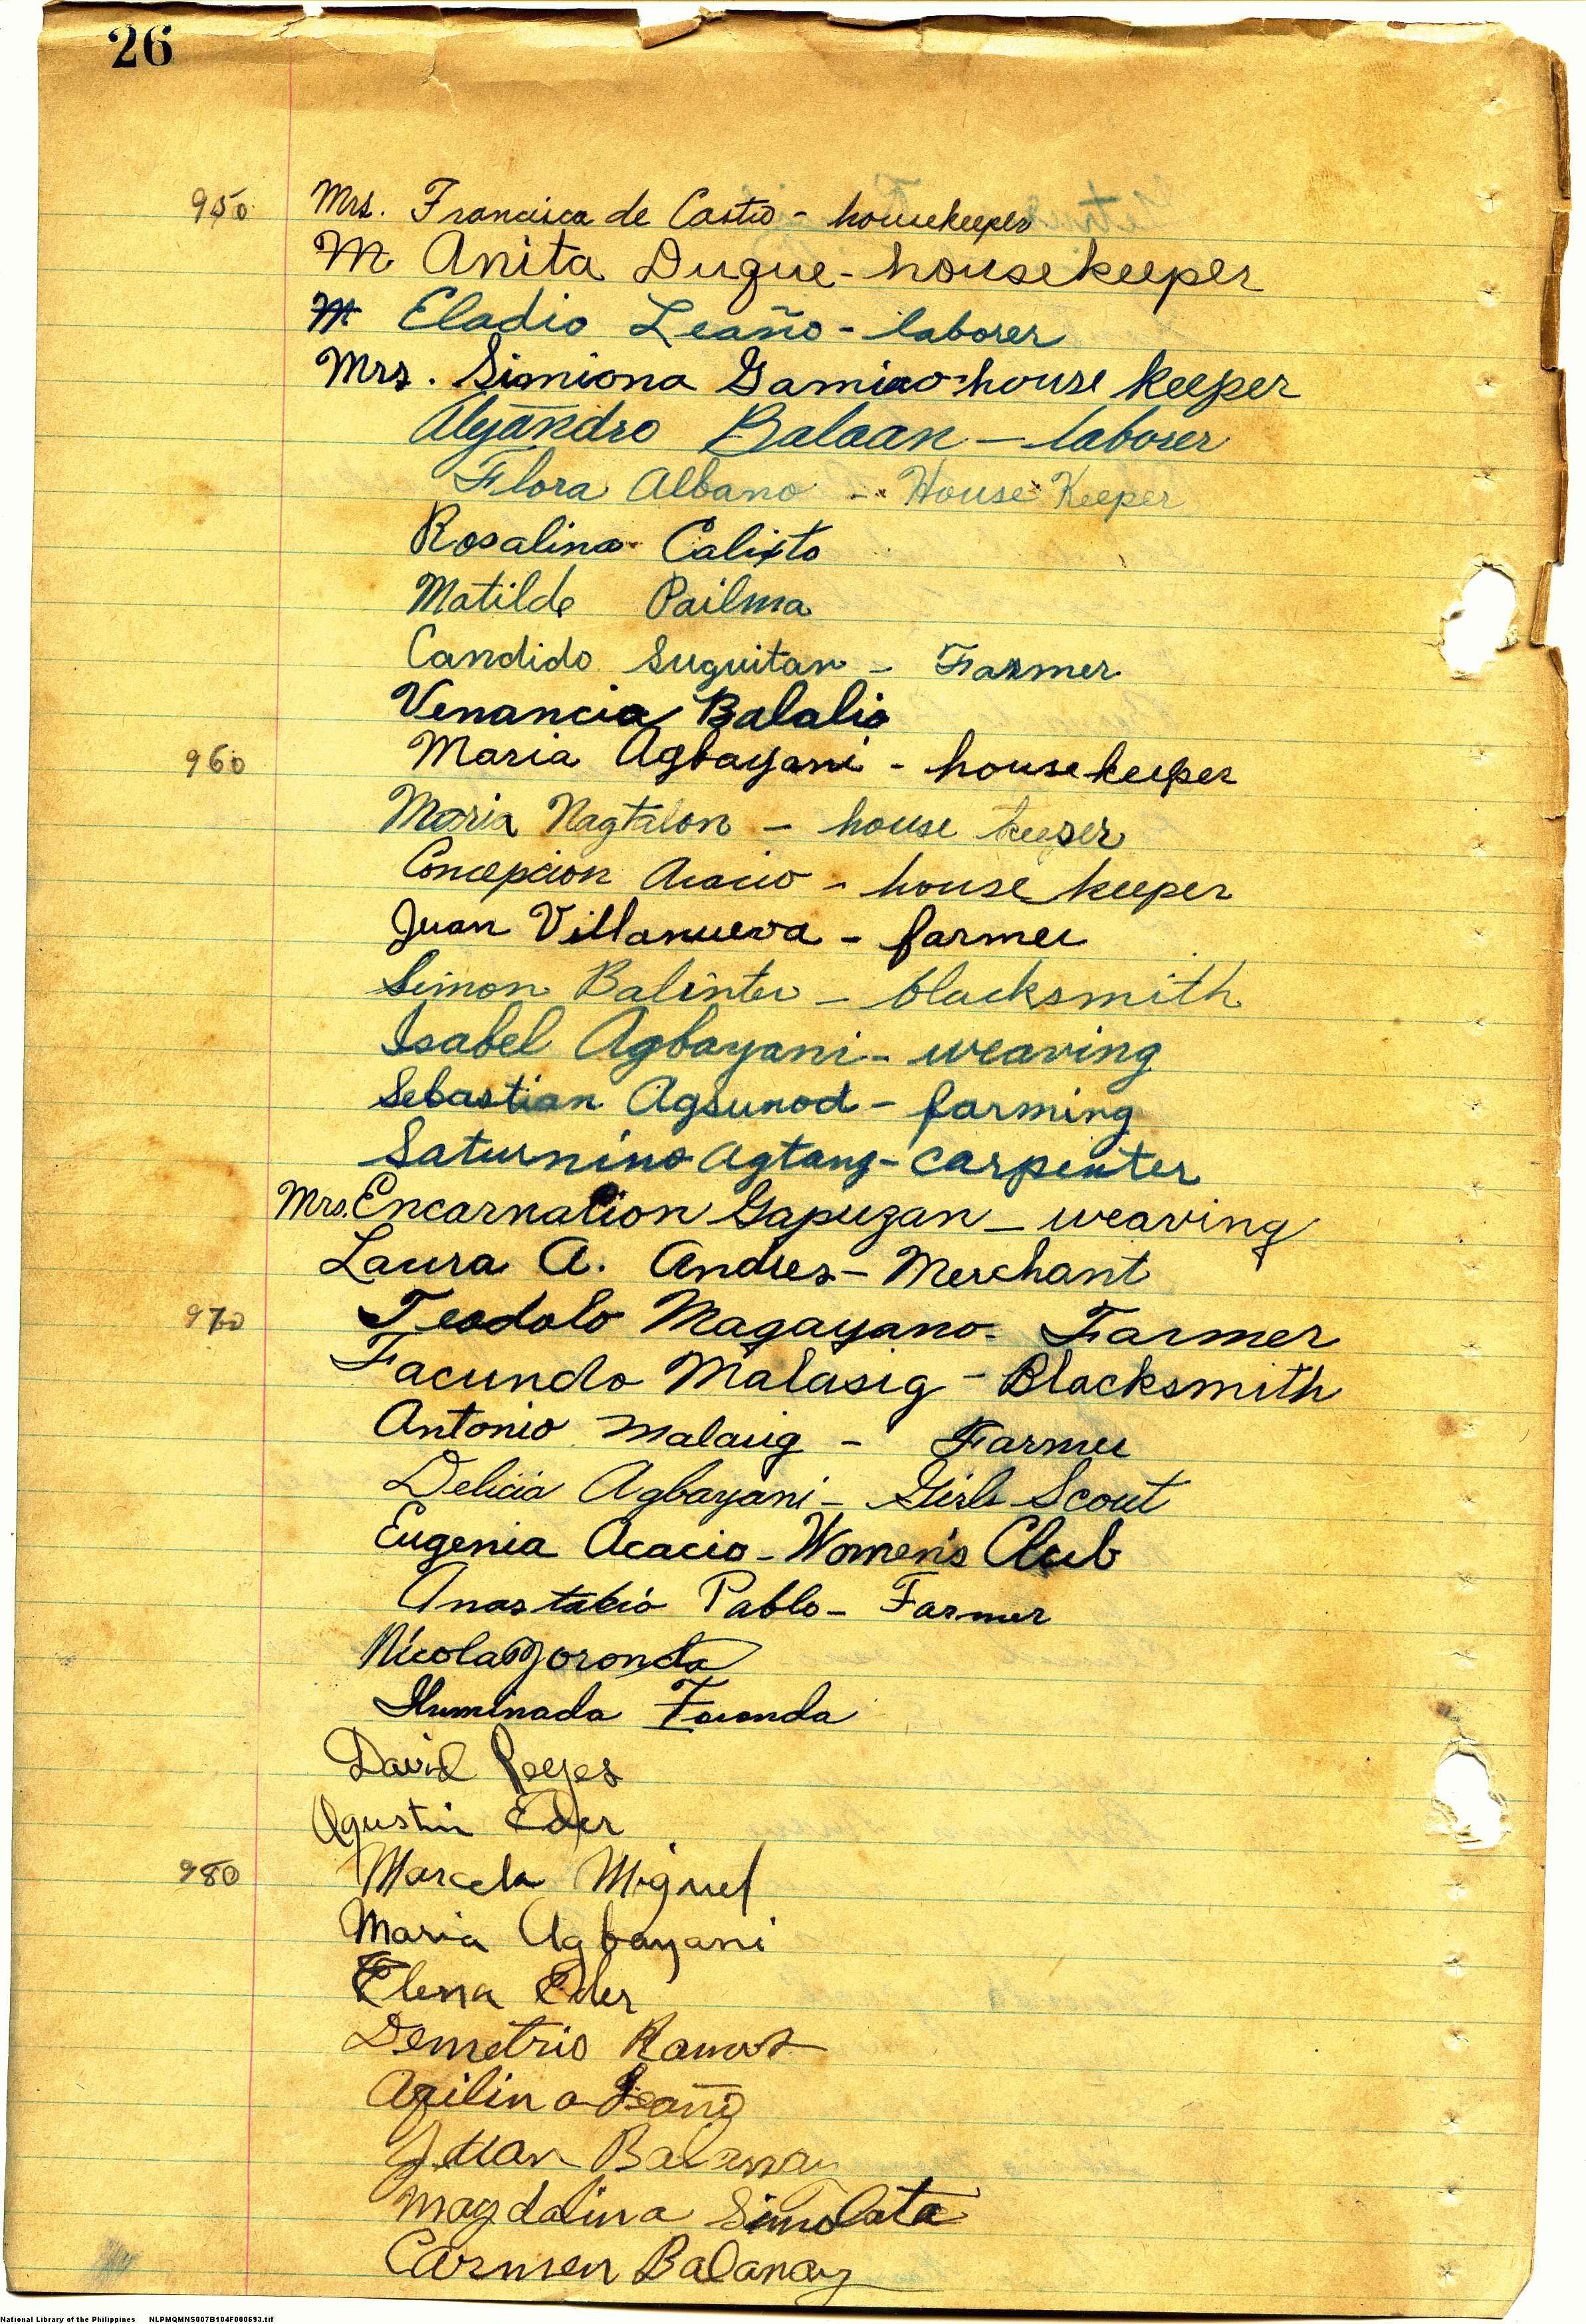 26
950 Mrs. Francisca de Castro - housekeeper
M Anita Duque - housekeeper
M Eladio Leaño - laborer
Mrs. Simiona Gamiao - house keeper
Alejandro Balaan - laborer
Flora Albano - House Keeper
Rosalina Calixto
Matilde Pailma
Candido Suguitan - Farmer
Venancia Balalio
960 Maria Agbayani - housekeeper
Maria Nagtalon - house keeper
Concepcion Acacio - house keeper
Juan Villanueva - farmer
Simon Balinter - blacksmith
Isabel Agbayani - weaving
Sebastian Agsunod - farming
Saturnino Agtang - carpenter
Mrs. Encarnacion Gapuzan - weaving
Laura A. Andres - Merchant
970 Teodolo Magayano - Farmer
Facundo Malasig - Blacksmith
Antonio Malasig - Farmer
Delicia Agbayani - Girls Scout
Eugenia Acacio - Women's Club
Anastacio Pablo - Farmer
Nicolas Foronda
Iluminada Foronda
David Reyes
Agustin Eder
980 Marcela Miguel
Maria Agbayani
Elena Eder
Demetrio Ramos
Apilina Leaño
Juan Balanay
Magdalina Simolata
Carmen Balanay
National Library of the Philippines NLPMQMNS007B104F000693.tif